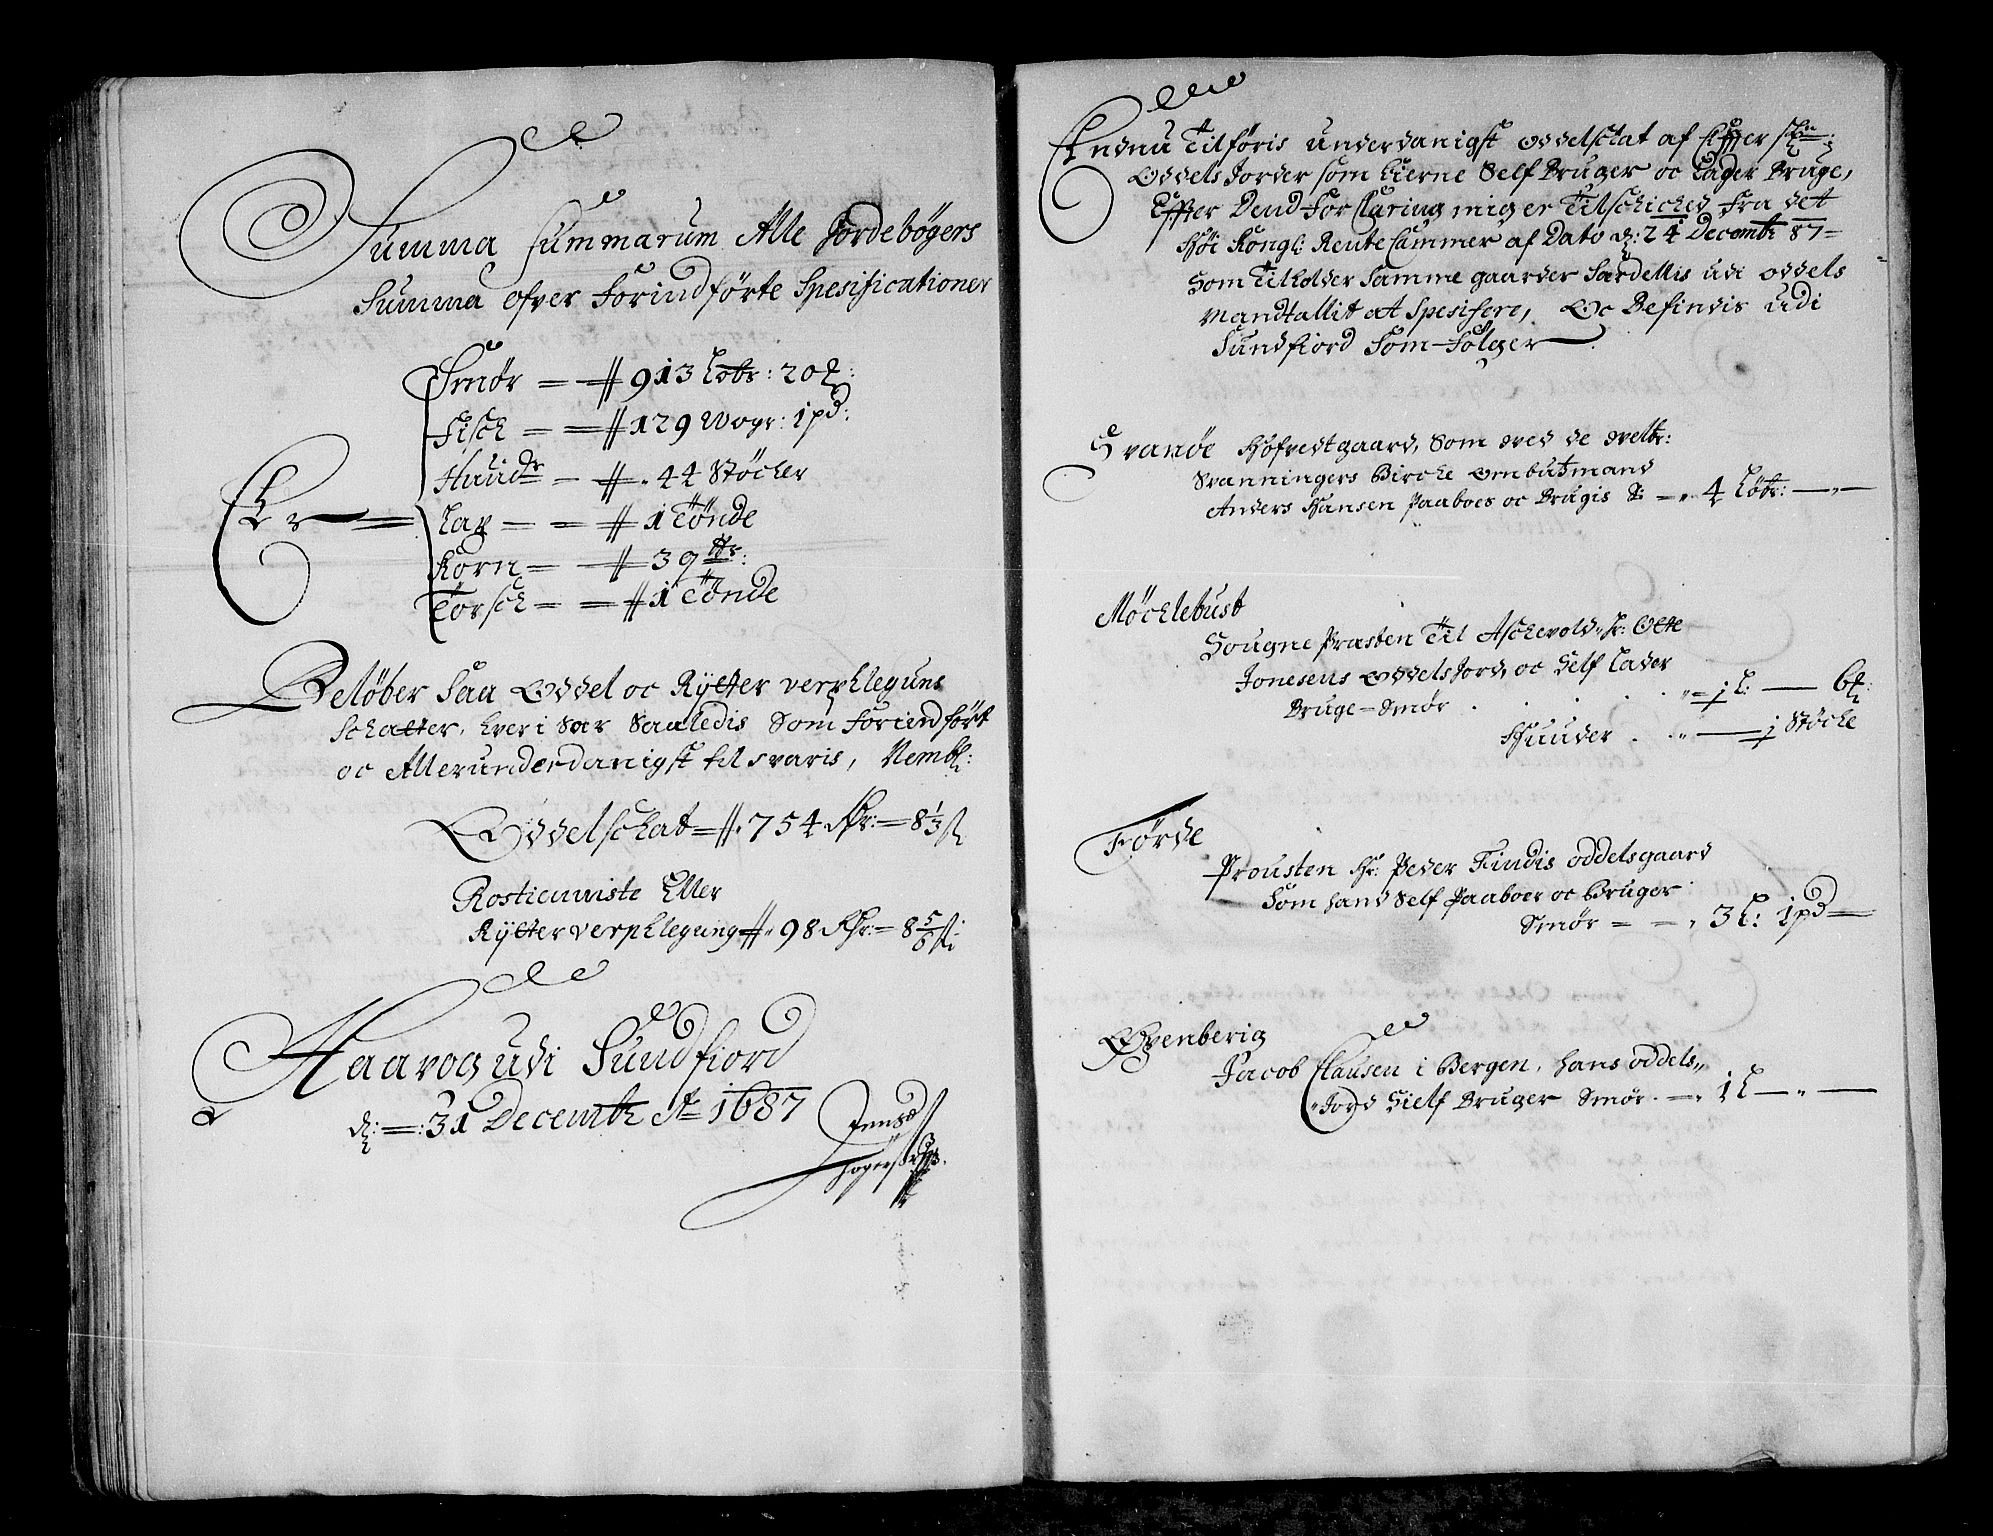 Summa summarum Alle Jordebøgers
Summa ofver Forindførte Spesificationer
Smør = 913 Løbr: 20
Fisch = = 129 Woger: 1 pd:
Huuder - 44 Støcher
Er = Lax - = 1 Tønde
Korn = 39
Torsch = = 1 Tønde
Beløber Saa Oddel oc Rÿtter verpflegungs
Schatter, hver i Sær Saaledis Som Forindført
oc Allerunderdanigst tilsvaris, Nembl:
Oddelschat = 754 Rdr: = 8 1/3 s
Rostieniste Eller
Rÿtterverpflegung 98 Rdr: = 8 5/6 s:
Haavog Udi Sundfiord
d: = : 31 Decembr Ao 1687
Jens
Endnu Tilføris underdanigst oddelschat af Effterschr:
Oddels Jorder som Eierne Self Bruger oc Lader Bruge,
Effter Dend Forclaring mig er Tilschiched fra det
Høi Kongl: Rente Cammer af Dato d: 24 Decembr 87 =
Som Tilholder Samme gaarder Særdellis udi oddels
Mandtallit at Spesifere, Oc Befindis udi
Sundfiord Som Følger
Svanøe Hofvedtgaard, Som ved de
Svanningers Bircke ombutmand
Anders Hansen Paaboes oc Brugis S: - 4 Løbr: -
Möchlebust
Sougne Præsten Til Aschevold, Hr: Otte
Jonesens Oddels Jord, oc Self Lader
Bruge - Smør . . . . . 1 L: - 6
Huuder . . - 1 Støche
Førde
Prousten Hr: Peder Findis oddelsgaard
Som hand Self Paaboer oc Bruger
Smør = = 3 L: 1 pd -
Øvenberig
Jacob Clausen i Bergen, hans oddels
Jord Sielf Bruger Smør. - 1 L - -